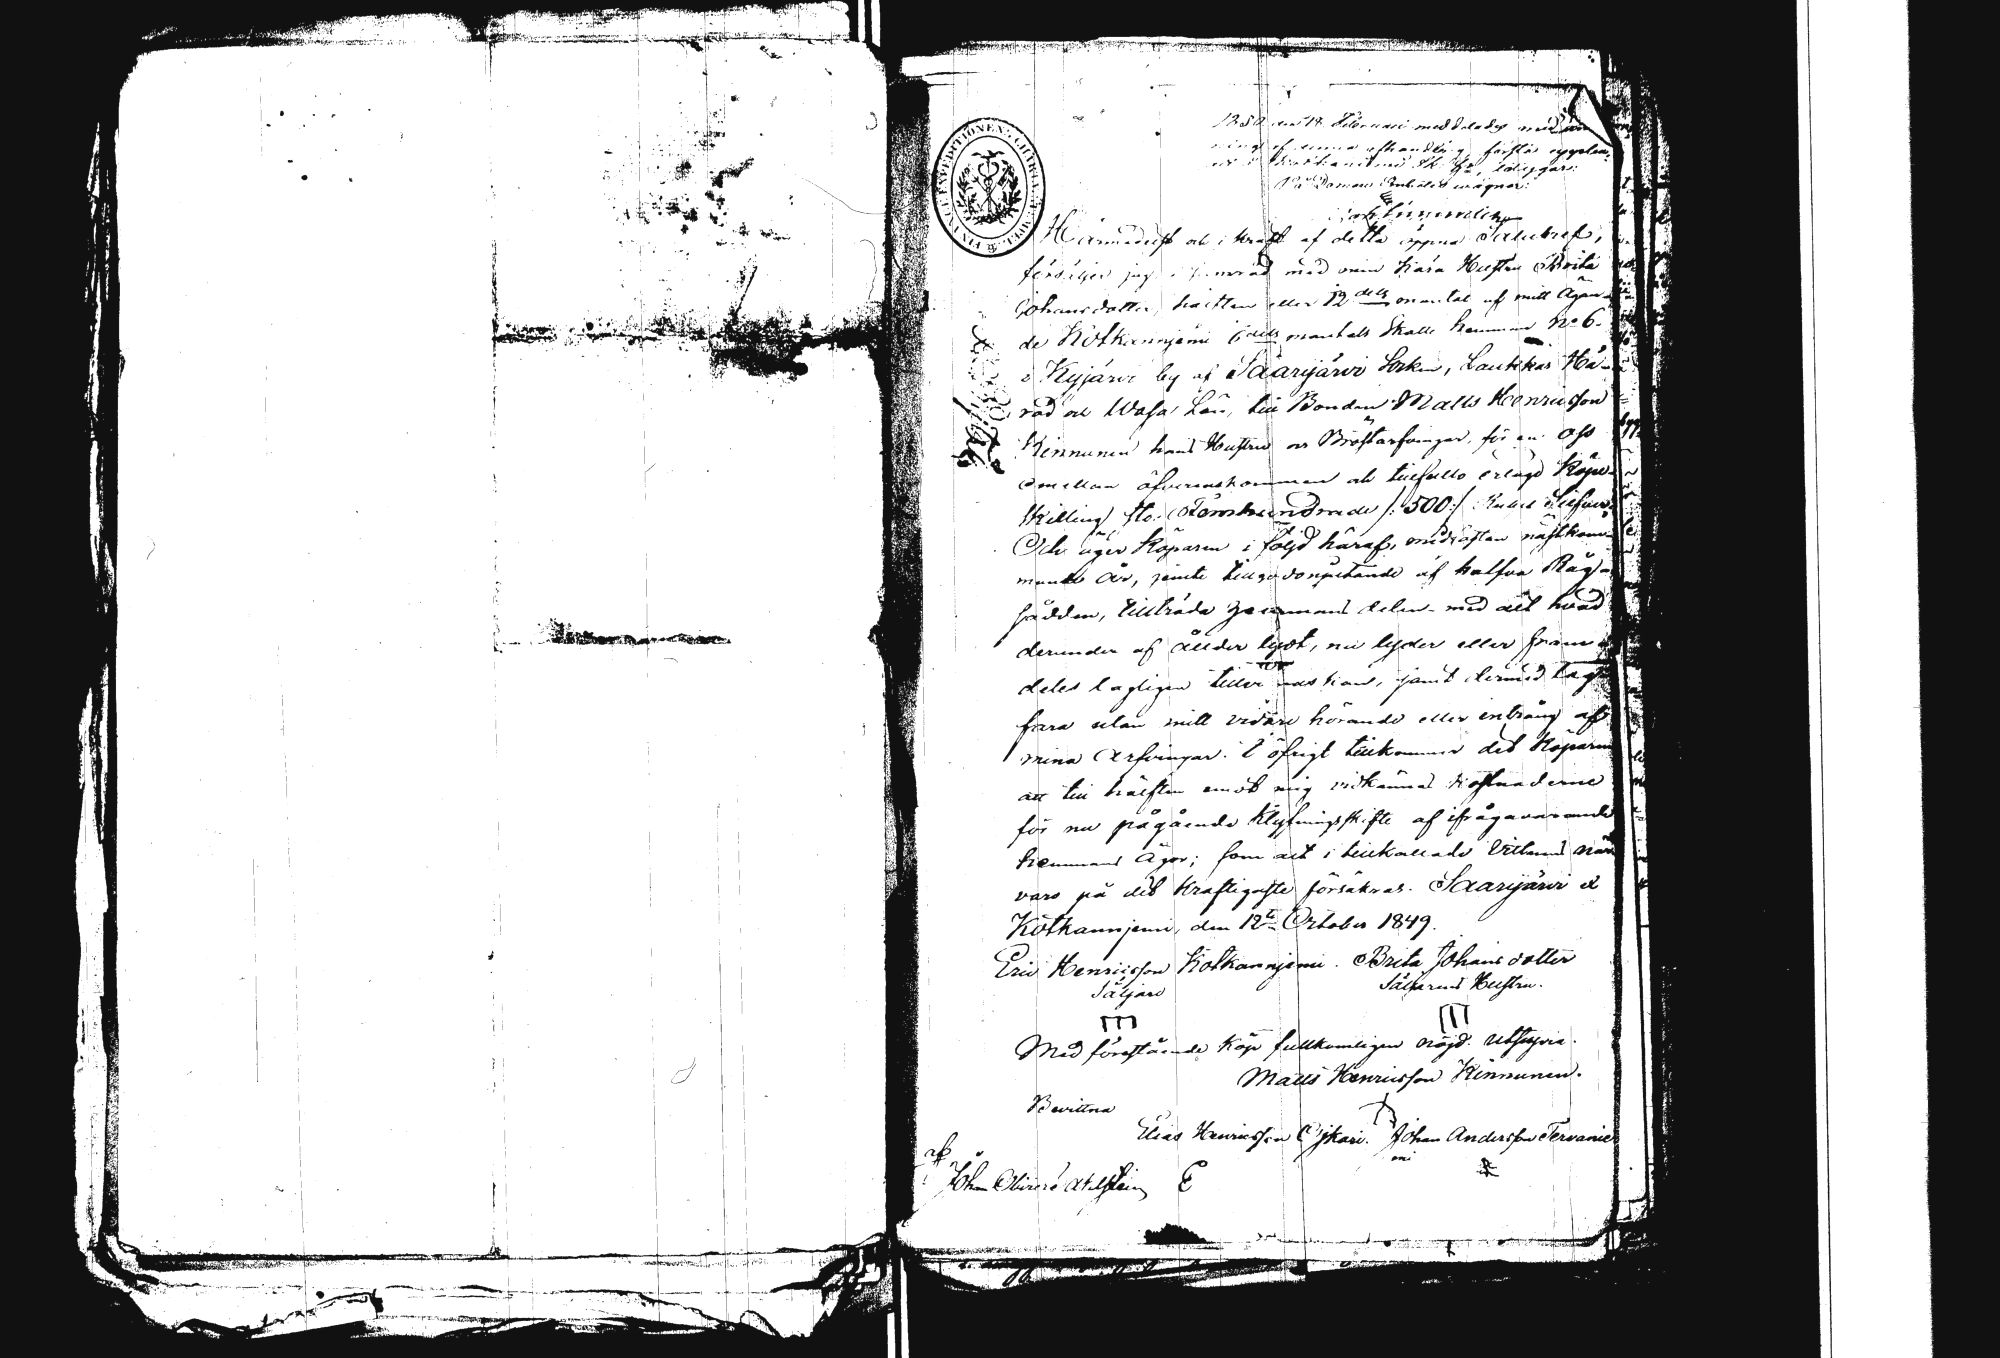 1850 den 18 Februari meddelades
af denna afhandling, förstås
Härmedelst och i kraft af detta öppna Salubref,
försäljer jag i samråd med min kära Hustru Brita
Johansdotter, hälften eller 12dels mantal af mitt ägan-
de Kotkanniemi 6dels mantals Skatte hemman No 6.
i Kyjärvi by af Saarijärvi Sokn, Laukkas Hä-
rad och Wasa Län, till Bonden Matts Henricsson
Kinnunen hans Hustru och Bröstarfvingar, för en oss
emellan öfverenskommen och tillfullo erlagd Köpe-
skilling sto: Femhundrade /: 500 :/ Rubel Silfver.
Och äger Köparen i följd häraf, midsoften nästkom-
mande år, jemte tillgodonjutande af halfva Råg-
sådden, tillträda hemmans delen med allt hvad
derunder af ålder lydt, nu lyder eller fram-
deles lagligen tillvinnas kan, samt dermed lag-
fara utan mitt vidare hörande eller intrång af
mina Arfvingar. I öfrigt tillkommer det Köparen
att till hälften emot mig vidkännas kostnaderne
för nu pågående Klyfningsskifte af ifrågavarande
hemmans ägor; som allt i tillkallade Vittnens när-
varo på det kraftigaste försäkras. Saarijärvi et
Kotkanniemi, den 12te October 1849.
Eric Henricsson Kotkanniemi. Brita Johansdotter
Säljare Säljarens Hustru.
Med förestående Köp fullkomligen nöjd. Utsupra.
Matts Henricsson Kinnunen.
Bevittna
Elias Henricsson Johan Andersson Tervanie
mi
Johan